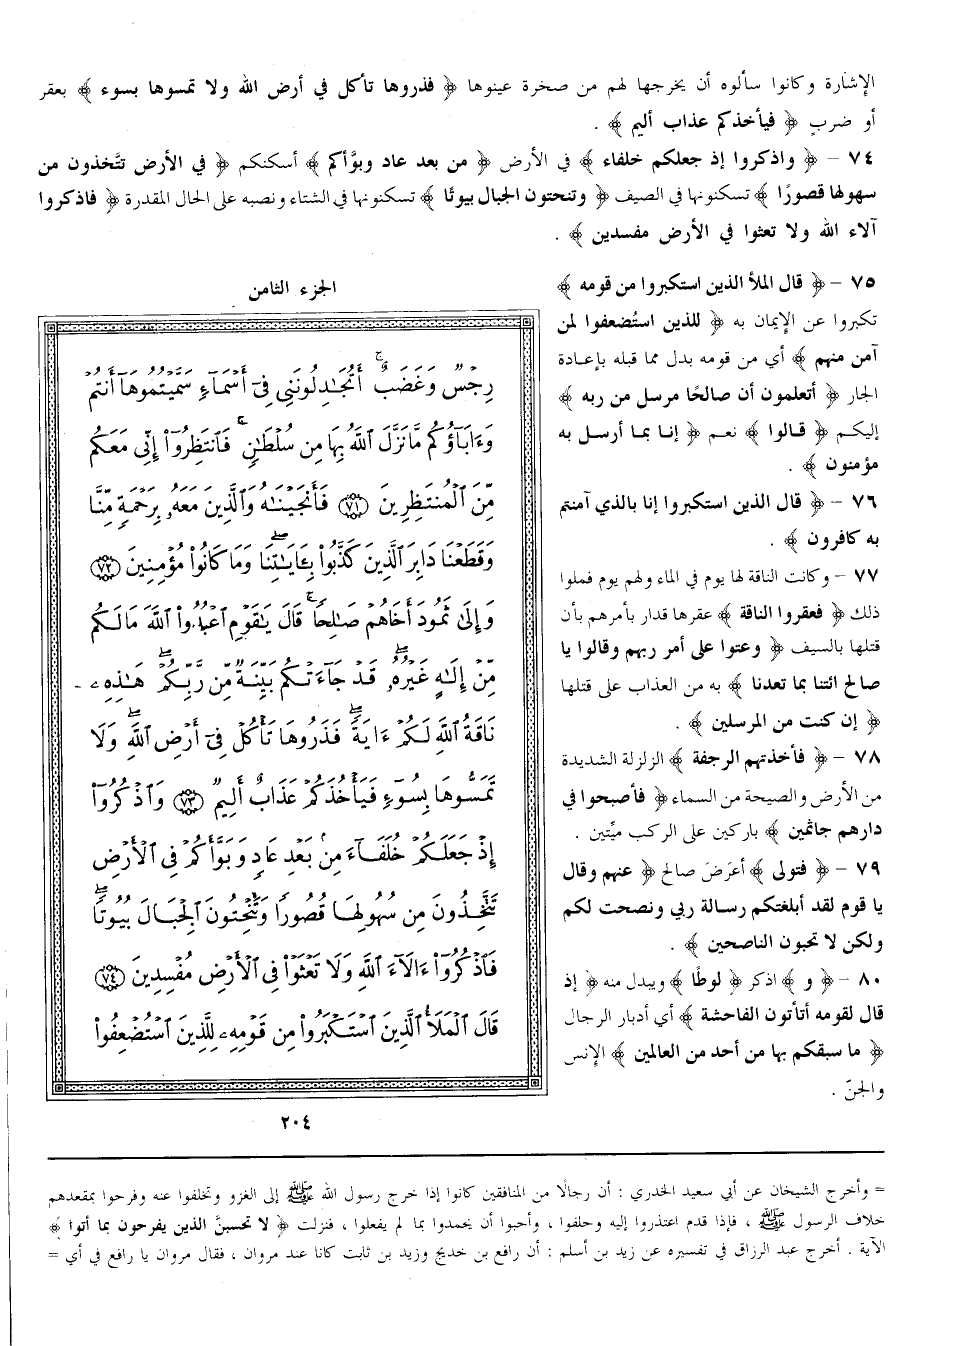 الإشارة وكانوا سألوه أن يخرجها لهم من صخرة عينوها ﴿ فذروها تأكل في أرض الله ولا تمسوها بسوء ﴾ بعقر
أو ضربٍ ﴿ فيأخذكم عذاب أليم ﴾ .
٧٤ – ﴿ واذكروا إذ جعلكم خلفاء ﴾ في الأرض ﴿ من بعد عاد وبوَّأكم ﴾ أسكنكم ﴿ في الأرض تتَّخذون من
سهولها قصورًا ﴾ تسكنونها في الصيف ﴿ وتنحتون الجبال بيوتًا ﴾ تسكنونها في الشتاء ونصبه على الحال المقدرة ﴿ فاذكروا
آلاء الله ولا تعثوا في الأرض مفسدين ﴾ .
٧٥ – ﴿ قال الملأ الذين استكبروا من قومه ﴾
تكبروا عن الإيمان به ﴿ للذين استُضعفوا لمن
آمن منهم ﴾ أي من قومه بدل مما قبله بإعادة
الجار ﴿ أتعلمون أن صالحًا مرسل من ربه ﴾
إليكم ﴿ قالوا ﴾ نعم ﴿ إنا بما أرسل به
مؤمنون ﴾ .
٧٦ – ﴿ قال الذين استكبروا إنا بالذي آمنتم
به كافرون ﴾ .
٧٧ – وكانت الناقة لها يوم في الماء ولهم يوم فملوا
ذلك ﴿ فعقروا الناقة ﴾ عقرها قدار بأمرهم بأن
قتلها بالسيف ﴿ وعتوا على أمر ربهم وقالوا يا
صالح ائتنا بما تعدنا ﴾ به من العذاب على قتلها
﴿ إن كنت من المرسلين ﴾ .
٧٨ – ﴿ فأخذتهم الرجفة ﴾ الزلزلة الشديدة
من الأرض والصيحة من السماء ﴿ فأصبحوا في
دارهم جاثمين ﴾ باركين على الركب ميِّتين .
٧٩ – ﴿ فتولى ﴾ أعرَضَ صالح ﴿ عنهم وقال
يا قوم لقد أبلغتكم رسالة ربي ونصحت لكم
ولكن لا تحبون الناصحين ﴾ .
٨٠ – ﴿ و ﴾ اذكر ﴿ لوطًا ﴾ ويبدل منه ﴿ إذ
قال لقومه أتأتون الفاحشة ﴾ أي أدبار الرجال
﴿ ما سبقكم بها من أحد من العالمين ﴾ الإنس
والجنّ .
الجزء الثامن
رِجۡسٌ وَغَضَبٌۖ أَتُجَٰدِلُونَنِي فِيٓ أَسۡمَآءٖ سَمَّيۡتُمُوهَآ أَنتُمۡ
وَءَابَآؤُكُم مَّا نَزَّلَ ٱللَّهُ بِهَا مِن سُلۡطَٰنٖۚ فَٱنتَظِرُوٓاْ إِنِّي مَعَكُم
مِّنَ ٱلۡمُنتَظِرِينَ ٧١ فَأَنجَيۡنَٰهُ وَٱلَّذِينَ مَعَهُۥ بِرَحۡمَةٖ مِّنَّا
وَقَطَعۡنَا دَابِرَ ٱلَّذِينَ كَذَّبُواْ بِـَٔايَٰتِنَاۖ وَمَا كَانُواْ مُؤۡمِنِينَ ٧٢
وَإِلَىٰ ثَمُودَ أَخَاهُمۡ صَٰلِحٗاۚ قَالَ يَٰقَوۡمِ ٱعۡبُدُواْ ٱللَّهَ مَا لَكُم
مِّنۡ إِلَٰهٍ غَيۡرُهُۥۖ قَدۡ جَآءَتۡكُم بَيِّنَةٞ مِّن رَّبِّكُمۡۖ هَٰذِهِۦ
نَاقَةُ ٱللَّهِ لَكُمۡ ءَايَةٗۖ فَذَرُوهَا تَأۡكُلۡ فِيٓ أَرۡضِ ٱللَّهِۖ وَلَا
تَمَسُّوهَا بِسُوٓءٖ فَيَأۡخُذَكُمۡ عَذَابٌ أَلِيمٞ ٧٣ وَٱذۡكُرُوٓاْ
إِذۡ جَعَلَكُمۡ خُلَفَآءَ مِنۢ بَعۡدِ عَادٖ وَبَوَّأَكُمۡ فِي ٱلۡأَرۡضِ
تَتَّخِذُونَ مِن سُهُولِهَا قُصُورٗا وَتَنۡحِتُونَ ٱلۡجِبَالَ بُيُوتٗاۖ
فَٱذۡكُرُوٓاْ ءَالَآءَ ٱللَّهِ وَلَا تَعۡثَوۡاْ فِي ٱلۡأَرۡضِ مُفۡسِدِينَ ٧٤
قَالَ ٱلۡمَلَأُ ٱلَّذِينَ ٱسۡتَكۡبَرُواْ مِن قَوۡمِهِۦ لِلَّذِينَ ٱسۡتُضۡعِفُواْ
٢٠٤
= وأخرج الشيخان عن أبي سعيد الخدري : أن رجالًا من المنافقين كانوا إذا خرج رسول الله ﷺ إلى الغزو وتخلفوا عنه وفرحوا بمقعدهم
خلاف الرسول ﷺ ، فإذا قدم اعتذروا إليه وحلفوا ، وأحبوا أن يحمدوا بما لم يفعلوا ، فنزلت ﴿ لا تحسبنَّ الذين يفرحون بما أتوا ﴾
الآية . أخرج عبد الرزاق في تفسيره عن زيد بن أسلم : أن رافع بن خديج وزيد بن ثابت كانا عند مروان ، فقال مروان يا رافع في أي =